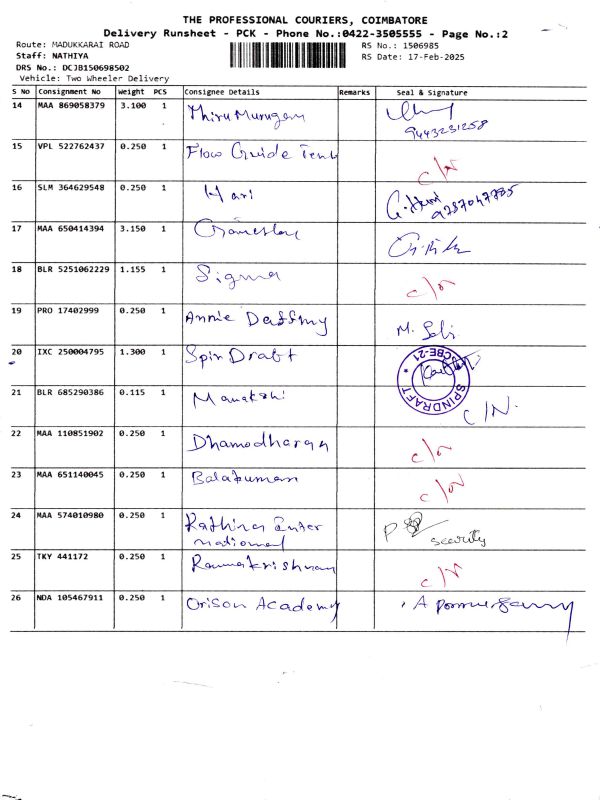 THE PROFESSIONAL COURIERS, COIMBATORE
Delivery Runsheet - PCK - Phone No.:0422-3505555 - Page No.:2
Route: MADUKKARAI ROAD RS No.: 1506985
Staff: NATHIYA RS Date: 17-Feb-2025
DRS No.: DCJB150698502
Vehicle: Two Wheeler Delivery
S No Consignment No Weight PCS Consignee Details Remarks Seal & Signature
14 MAA 869058379 3.100 1 Thiru Murugan
9443231258
15 VPL 522762437 0.250 1 Flow Guide Tenb C/N
16 SLM 364629548 0.250 1 Hari G. Hari
9787047785
17 MAA 650414394 3.150 1
18 BLR 5251062229 1.155 1 Sigma C/N
19 PRO 17402999 0.250 1 Annie Daffiny M. Selvi
20 IXC 250004795 1.300 1 Spin Draft SPINDRAFT * CBE-21 *
21 BLR 685290386 0.115 1 Manakshi C/N.
22 MAA 110851902 0.250 1 Dhamodharan C/N
23 MAA 651140045 0.250 1 Balakumar C/N
24 MAA 574010980 0.250 1 Rathina Inter P
national security
25 TKY 441172 0.250 1 Ramakrishnan C/N
26 NDA 105467911 0.250 1 Orison Academy